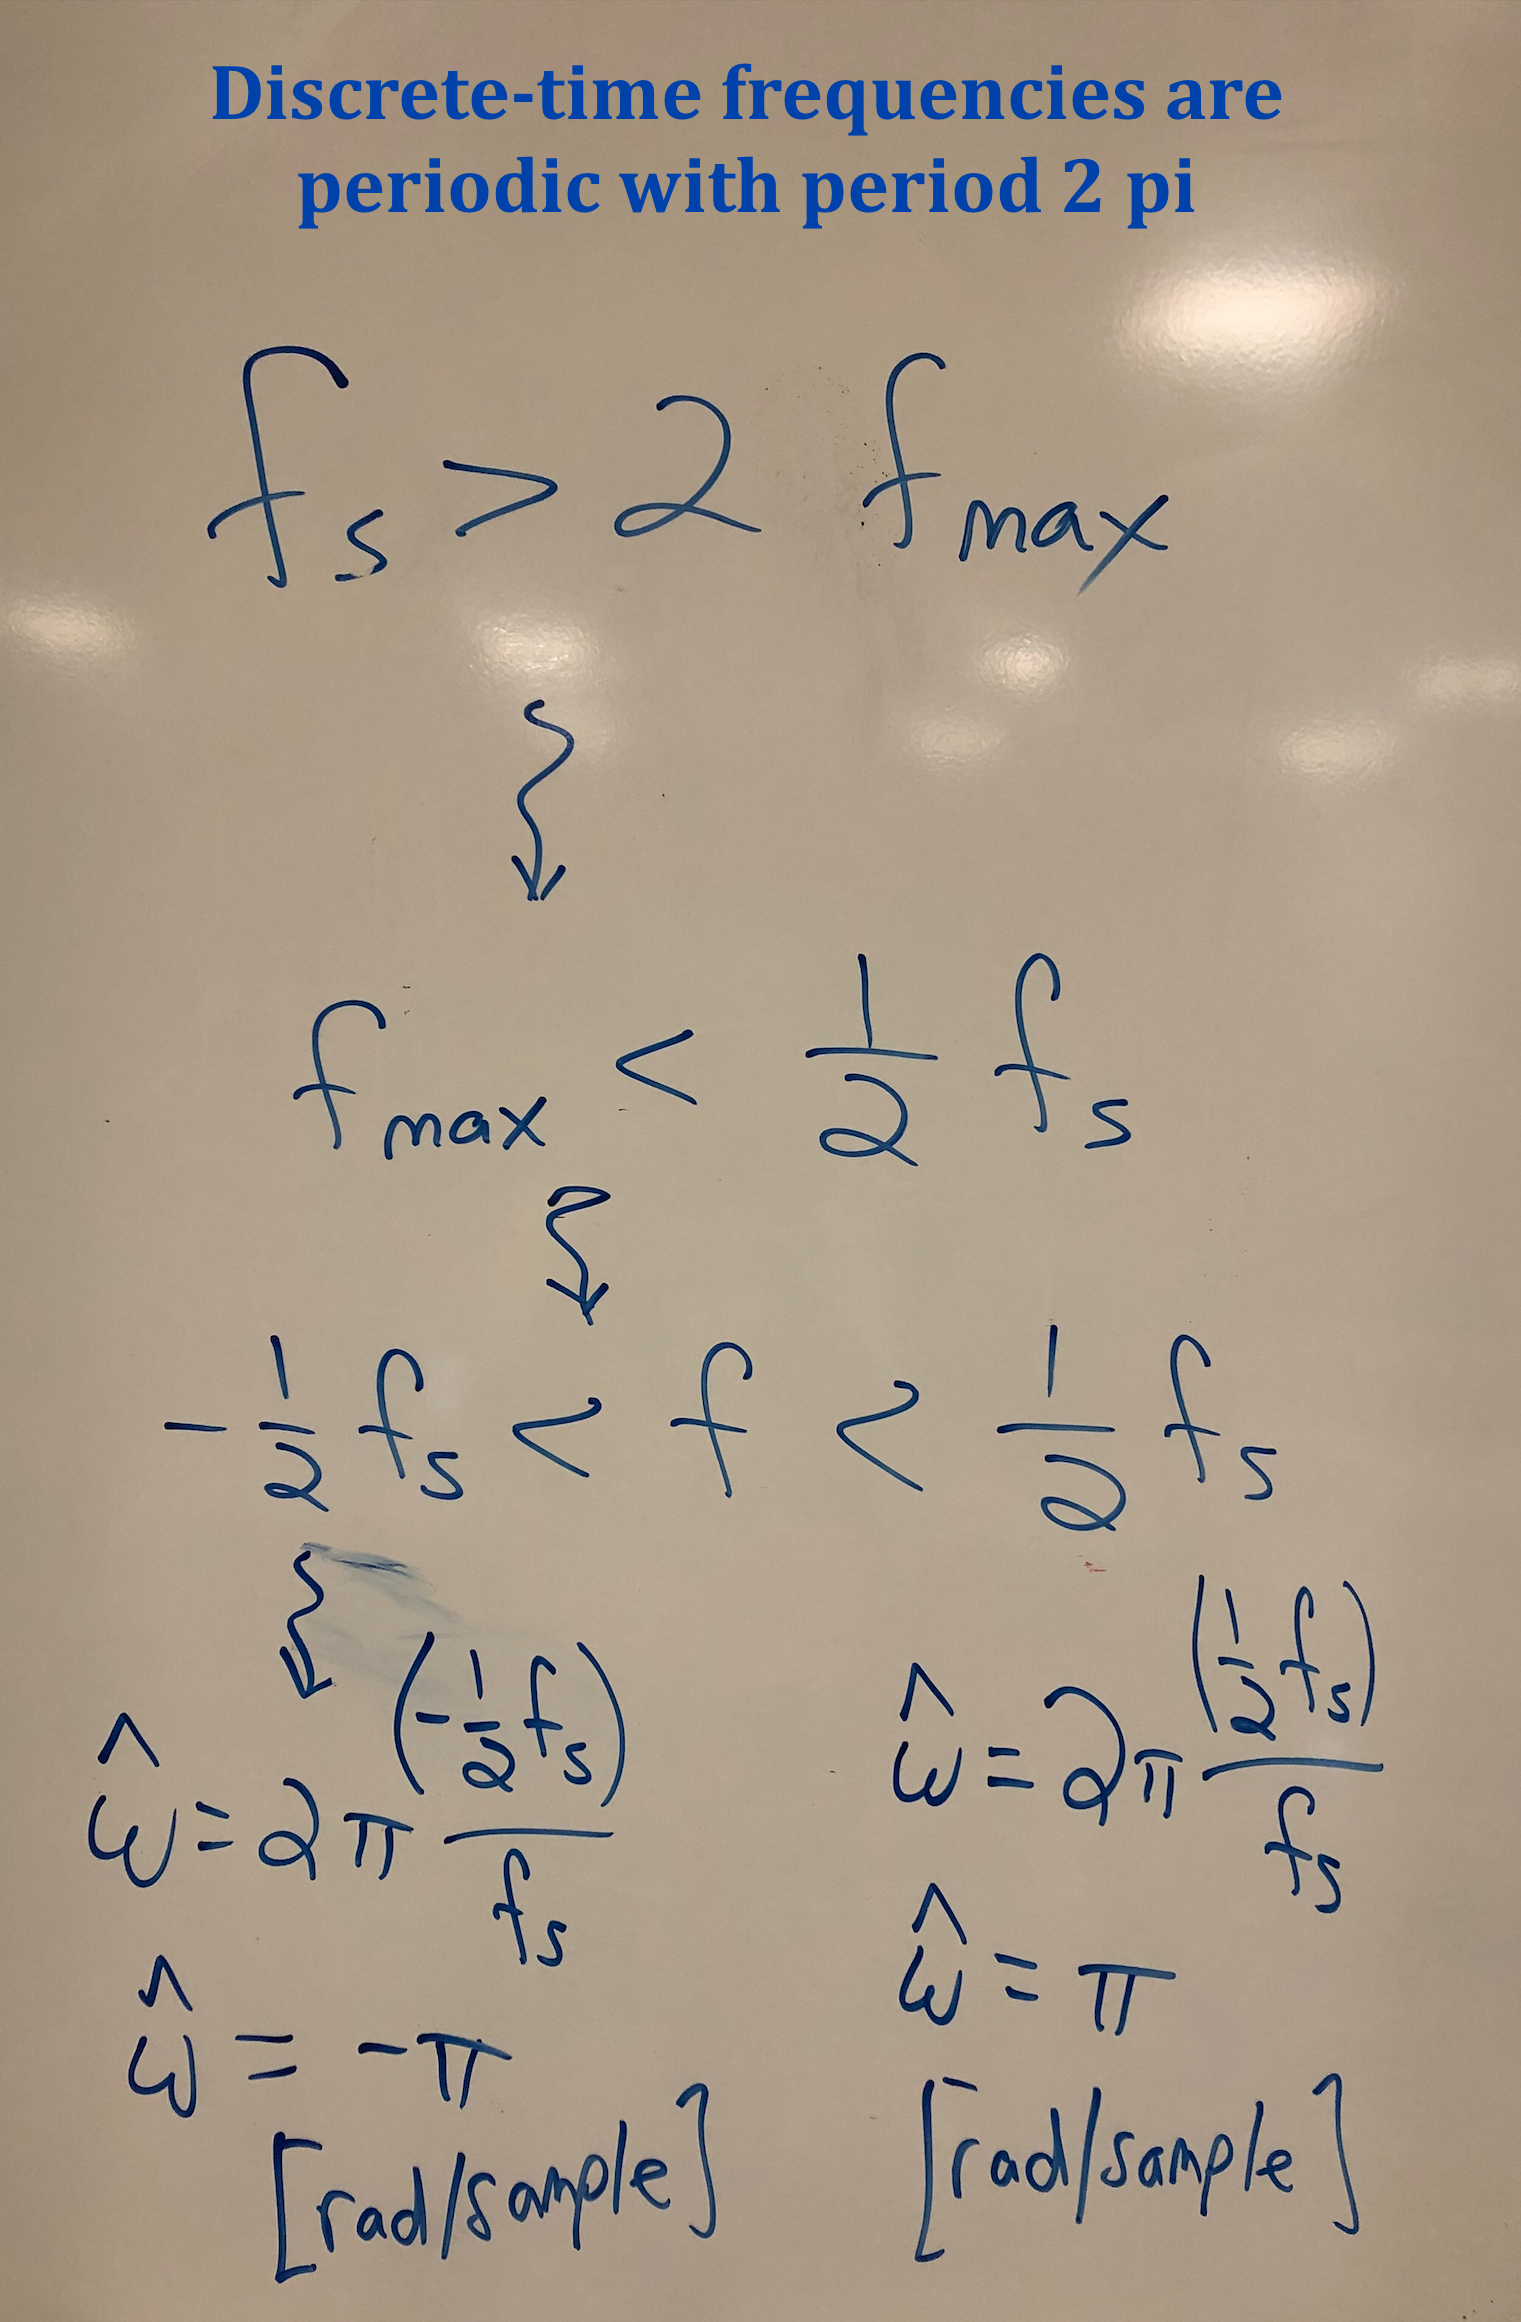 Discrete-time frequencies are
periodic with period 2 pi
fₛ > 2 f_max
f_max < 1/2 fₛ
-1/2 fₛ < f < 1/2 fₛ
ω̂ = 2π (-1/2 fₛ)/fₛ
ω̂ = 2π (1/2 fₛ)/fₛ
ω̂ = -π
ω̂ = π
[rad/sample]
[rad/sample]